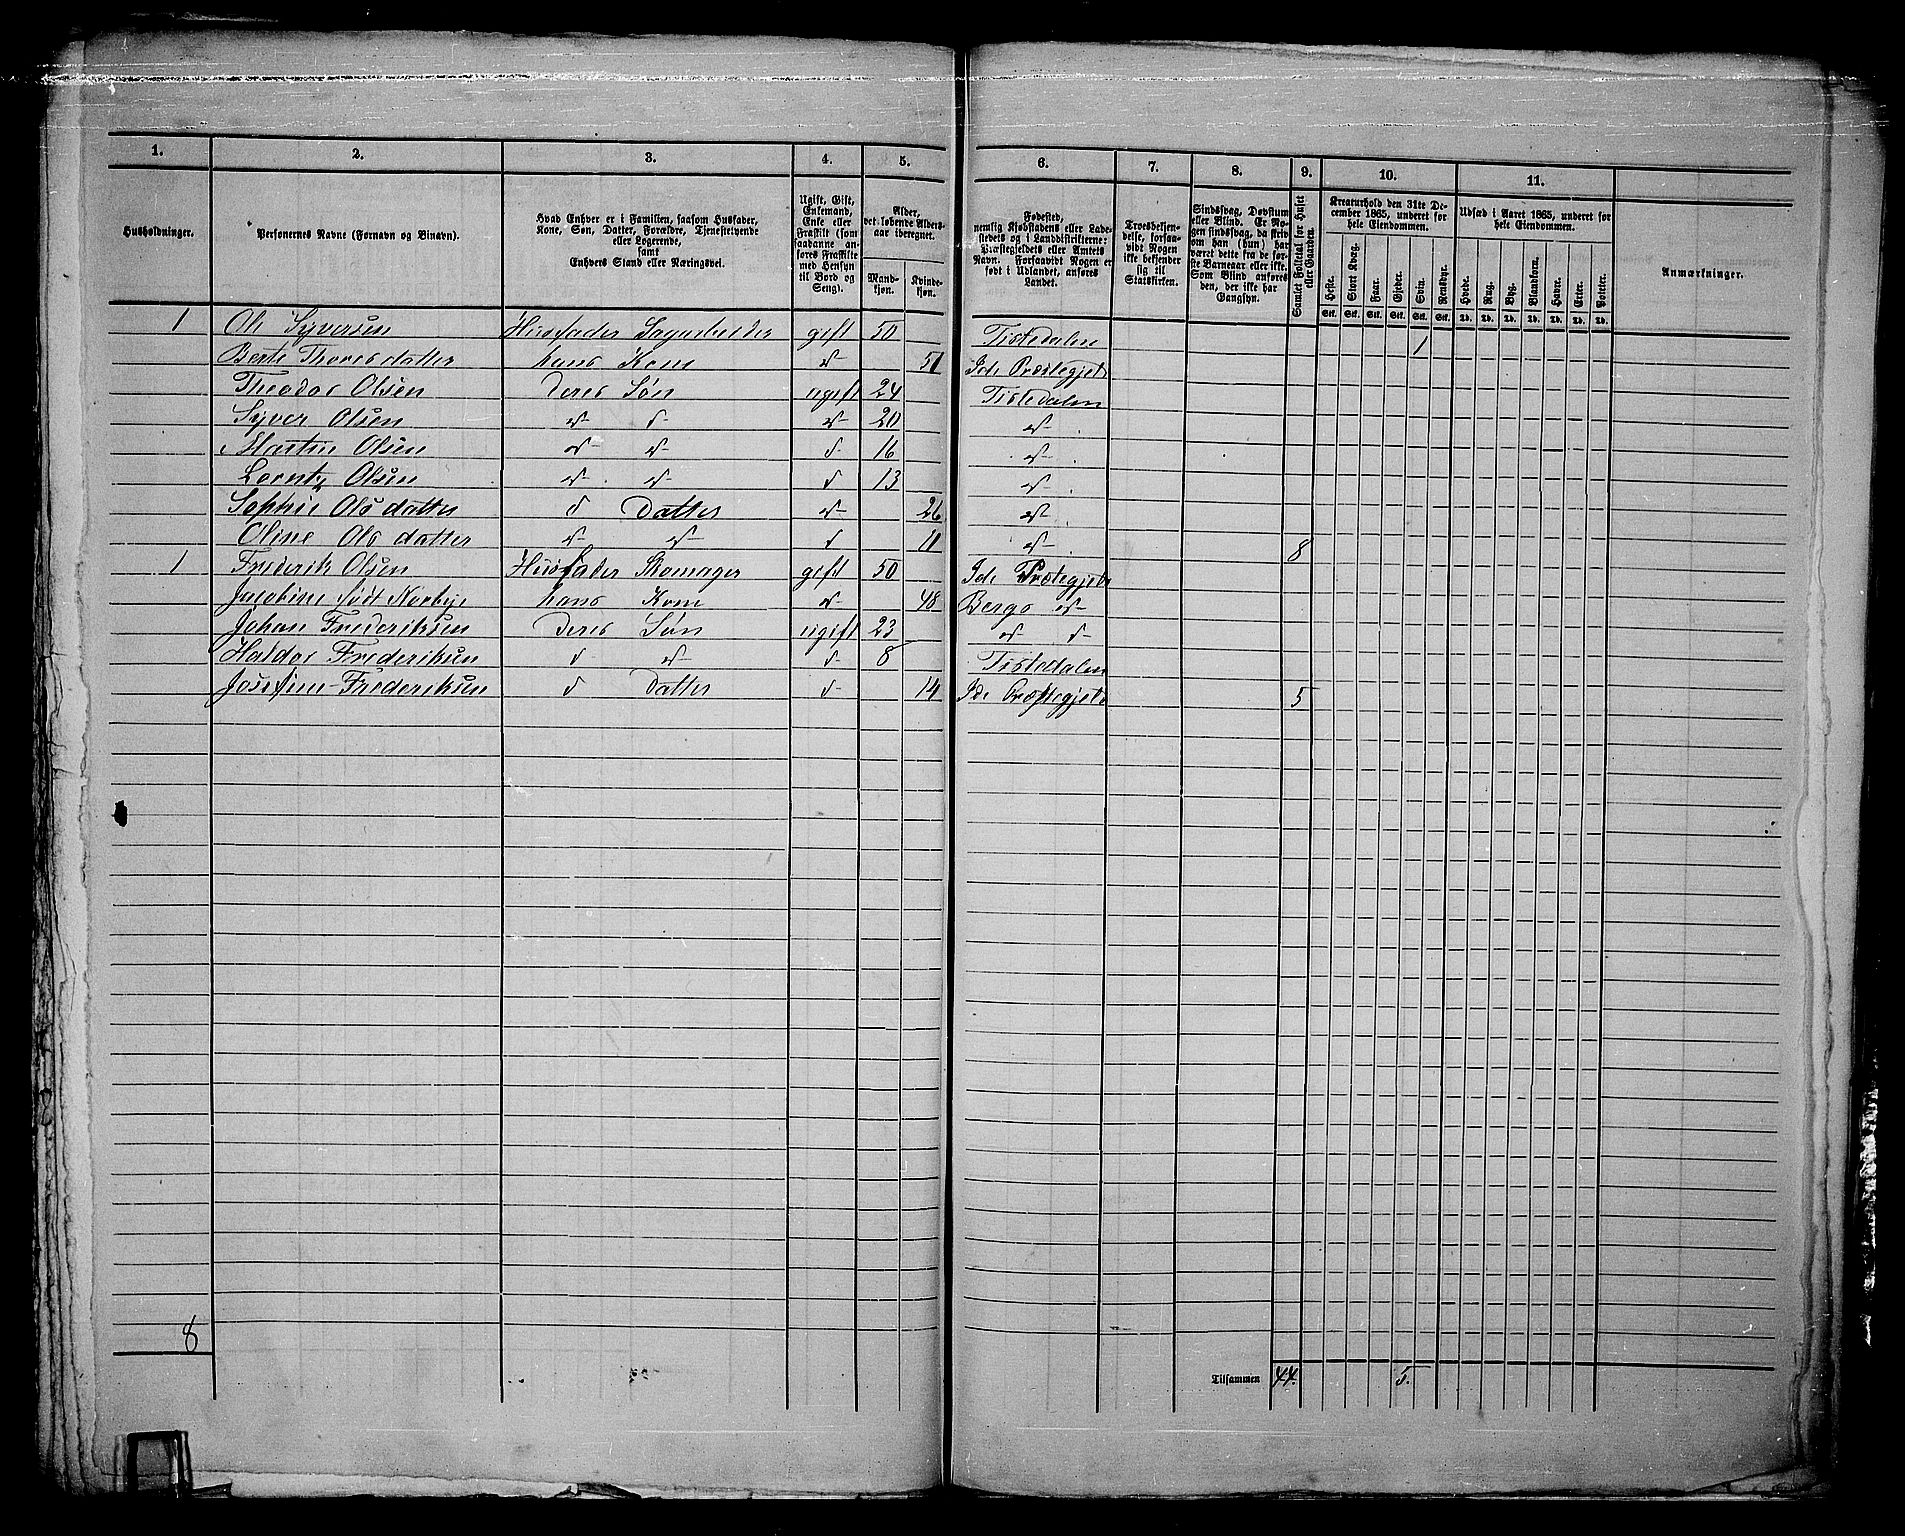 1. 2. 3. 4. 5. 6. 7. 8. 9. 10. 11.
Husholdninger.
Personernes Navne (Fornavn og Binavn).
Hvad Enhver er i Familien, saasom Husfader,
Kone, Søn, Datter, Forældre, Tjenestetyende
eller Logerende,
samt
Enhvers Stand eller Næringsvei.
Ugift, Gift,
Enkemand,
Enke eller
Fraskilt (som
saadanne an-
føres Fraskilte
med Hensyn
til Bord og
Seng).
Alder,
det løbende Alders-
aar iberegnet.
Mand-
kjøn.
Kvinde-
kjøn.
Fødested,
nemlig Kjøbstadens eller Lade-
stedets og i Landdistrikterne:
Præstegjeldets eller Amtets
Navn. Forsaavidt Nogen er
født i Udlandet, anføres
Landet.
Troesbekjen-
delse, forsaa-
vidt Nogen
ikke bekjender
sig til
Statskirken.
Sindssvag, Døvstum
eller Blind. Er No-
gen sindssvag, da skriv
om han (hun) har
været dette fra de før-
ste Barneaar eller ikke.
Som Blind anføres
den, der ikke har
Gangsyn.
Samlet Folketal for Huset
eller Gaarden.
Kreaturhold den 31te De-
cember 1865, underet for
hele Eiendommen.
Heste. Stort Kvæg. Faar. Gjeder. Svin. Rensdyr.
Stk. Stk. Stk. Stk. Stk. Stk.
Udsæd i Aaret 1865, underet for
hele Eiendommen.
Hvede. Rug. Byg. Blandkorn. Havre. Erter. Poteter.
Td. Td. Td. Td. Td. Td. Td.
Anmærkninger.
1 Ole Syversen Huusfader Sagarbeider gift 50 Tistedalen 1
Berte Thoresdatter hans Kone v- 51 Ide Præstegjeld
Theodor Olsen Deres Søn ugift 24 Tistedalen
Syver Olsen v- d- v- 20 v-
Martin Olsen v- v- d- 16 v-
Lorntz Olsen v- v- d 13 v-
Sophie Olsdatter d Datter v- 26 v-
Oline Olsdatter v- v- d 11 v- 8
1 Frederik Olsen Huusfader Skomager gift 50 Ide Præstegjeld
Jacobine født Norbye hans Kone v- 48 Bergs v-
Johan Frederiksen Deres Søn ugift 23 v- d-
Haldor Frederiksen d- v- d- 8 Tistedalen
Josefine Frederiksen d Datter d- 14 Ide Præstegjeld 5
8
Tilsammen 44. 5.